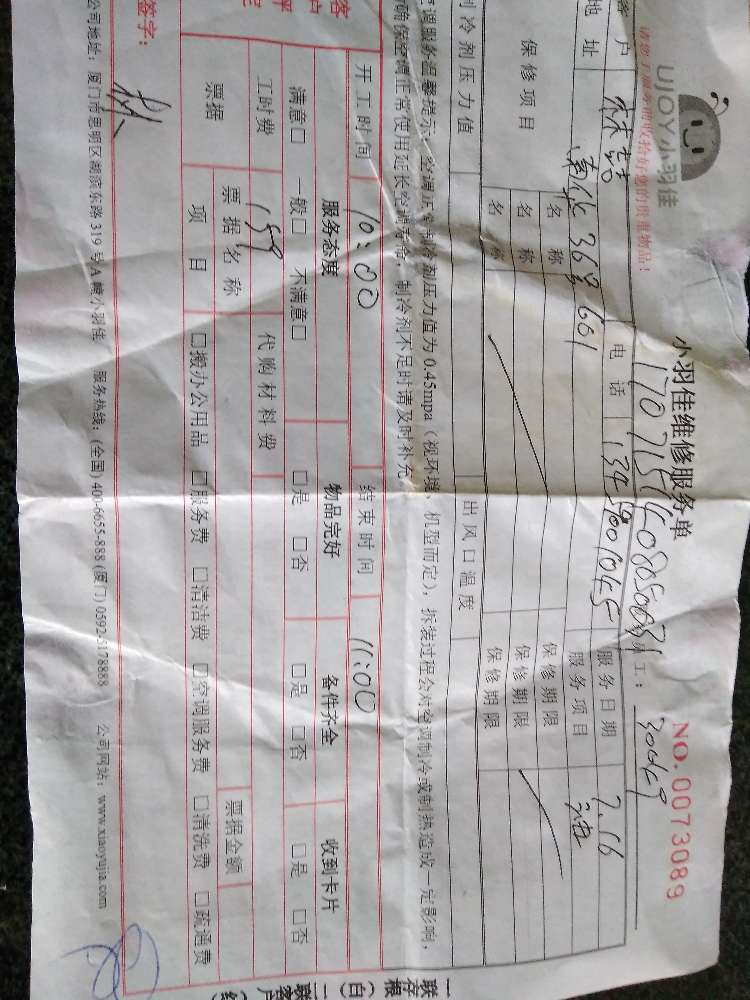 UJOY小羽佳
请您于服务前收拾好您的贵重物品!
小羽佳维修服务单
NO. 0073089
工: 30449
客户 电话 服务日期 7.16
地址 368 601 服务项目
保修项目 名称 保修期限
名称 保修期限
名称 保修期限
制冷剂压力值 出风口温度
空调服务温馨提示:空调正常制冷剂压力值为0.45mpa(视环境、机型而定),拆装过程会对空调制冷或制热造成一定影响,
确保空调正常使用延长空调寿命,制冷剂不足时请及时补充
开工时间 10:00 结束时间 11:00
服务态度 物品完好 备件齐全 收到卡片
满意□ 一般□ 不满意□ □是 □否 □是 □否 □是 □否
工时费 159 代购材料费
票据 票据名称 票据金额
项目 □搬办公用品 □服务费 □清洁费 □空调服务费 □清洗费 □疏通费
签字: 林
公司地址:厦门市思明区湖滨东路319号A幢小羽佳 服务热线:(全国) 400-6655-888 (厦门) 0592-5178888 公司网站:www.xiaoyujia.com
一联存根(白)二联客户(红)